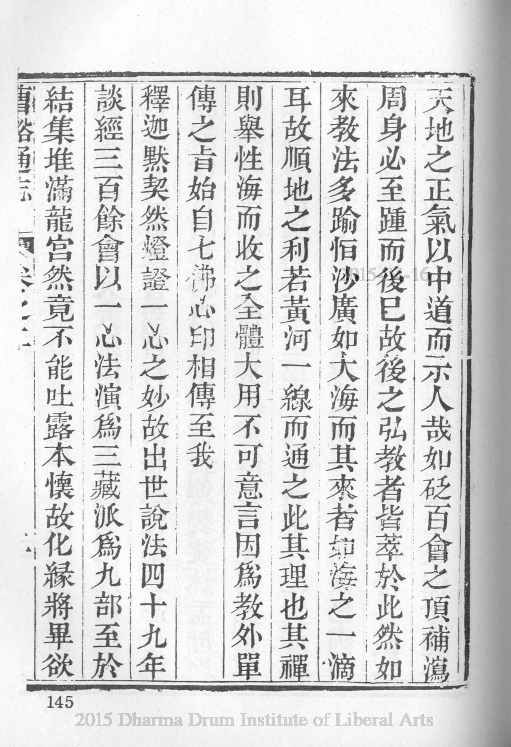 天地之正氣以中道而示人哉如砭百會之頂補瀉
周身必至踵而後巳故後之弘教者皆萃於此然如
來教法多踰恒沙廣如大海而其來者如海之一滴
耳故順地之利若黃河一線而通之此其理也其禪
則舉性海而收之全體大用不可意言因爲教外單
傳之旨始自七佛心印相傳至我
釋迦默契然燈證一心之妙故出世說法四十九年
談經三百餘會以一心法演爲三藏派爲九部至於
結集堆滿龍宮然竟不能吐露本懷故化緣將畢欲
曹谿通志 卷之二
145
2015 Dharma Drum Institute of Liberal Arts